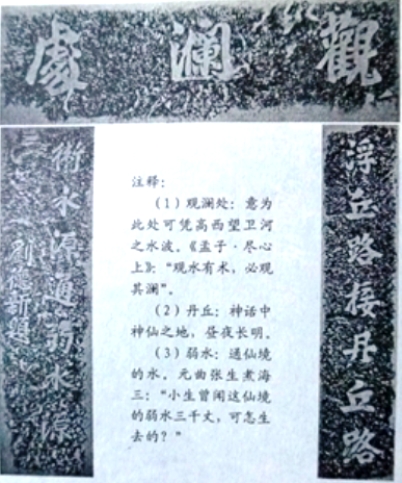 觀瀾處
浮丘路接丹丘路
衛水源通弱水源
劉德新題
注释：
（1）观澜处：意为
此处可凭高西望卫河
之水波。《孟子·尽心
上》：“观水有术，必观
其澜”。
（2）丹丘：神话中
神仙之地，昼夜长明。
（3）弱水：通仙境
的水。元曲张生煮海
三：“小生曾闻这仙境
的弱水三千丈，可怎生
去的？”